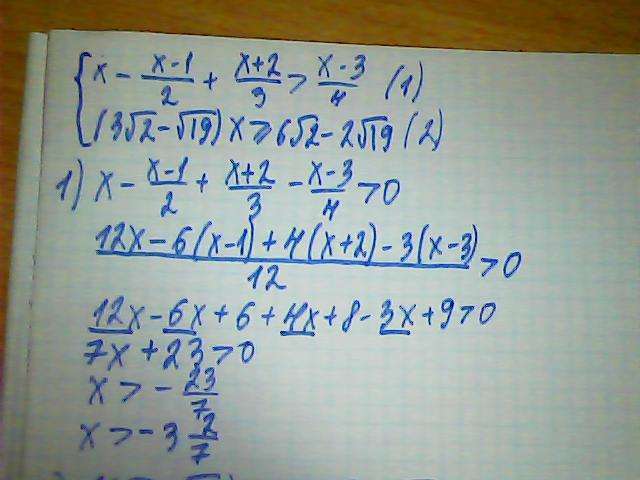 { x - (x-1)/2 + (x+2)/3 > (x-3)/4 (1)
(3√2 - √19) x > 6√2 - 2√19 (2)
1) x - (x-1)/2 + (x+2)/3 - (x-3)/4 > 0
(12x - 6(x-1) + 4(x+2) - 3(x-3))/12 > 0
12x - 6x + 6 + 4x + 8 - 3x + 9 > 0
7x + 23 > 0
x > - 23/7
x > - 3 2/7